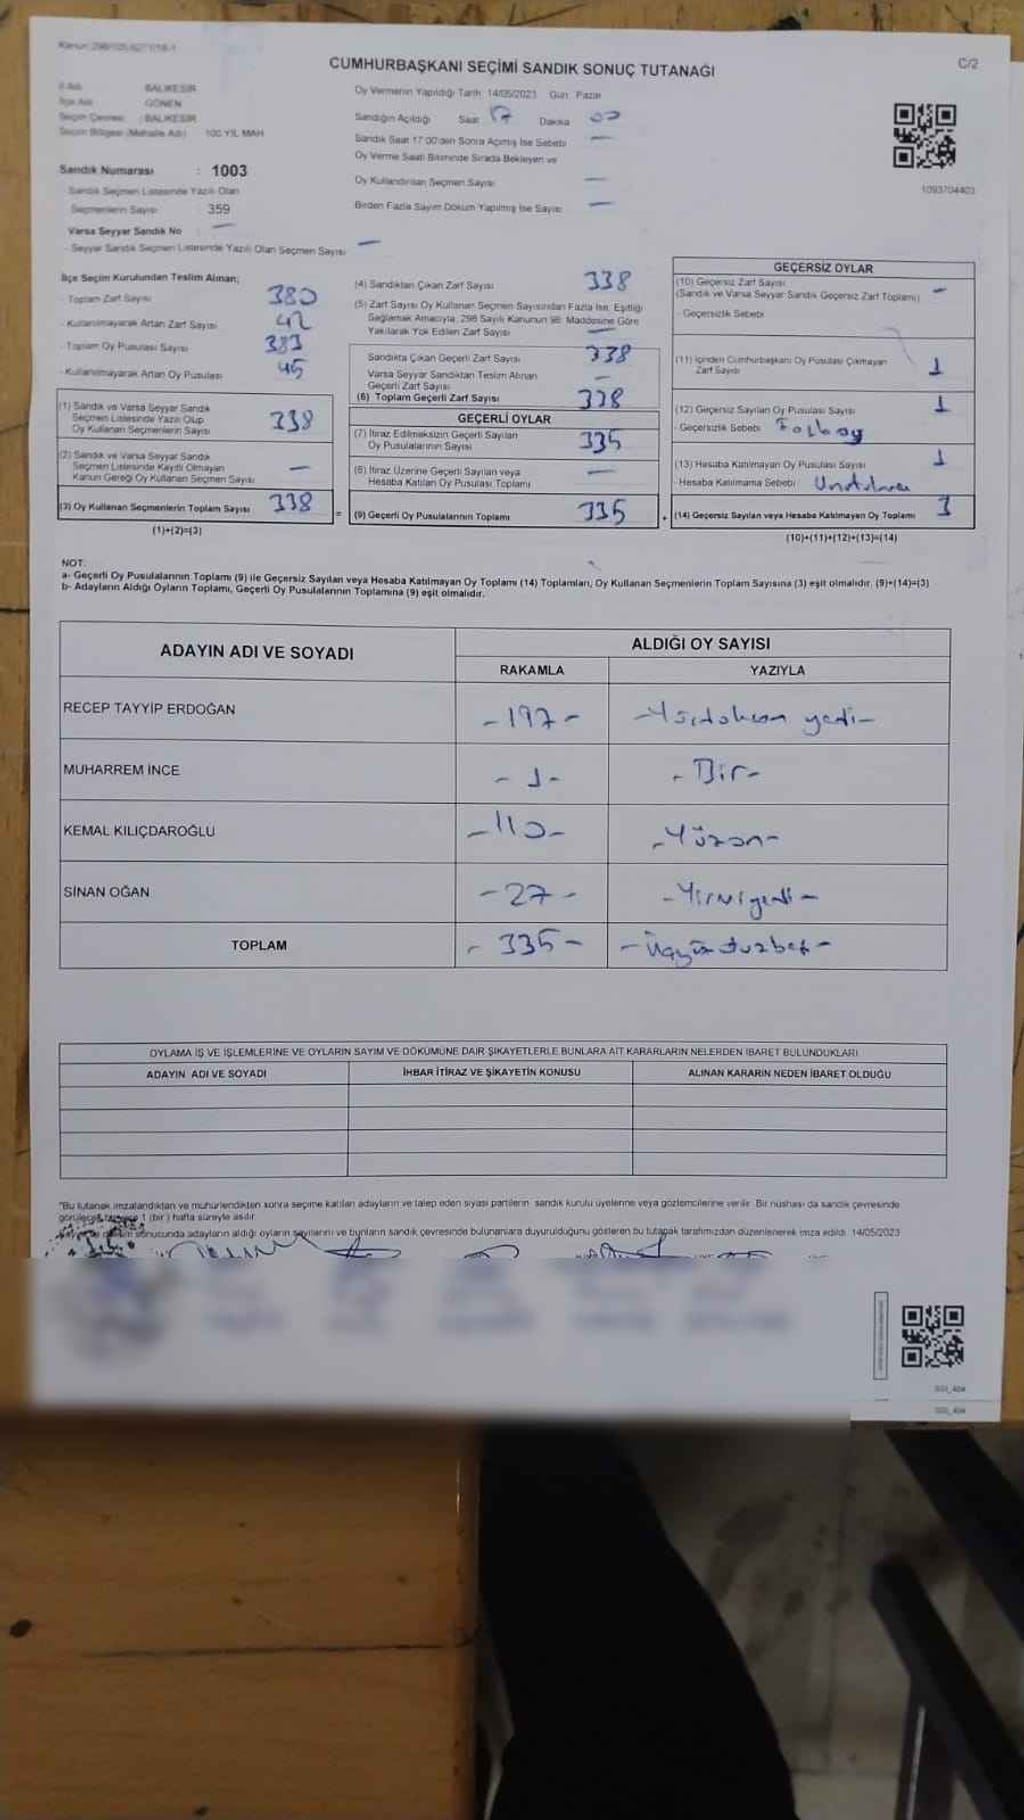 CUMHURBAŞKANI SEÇİMİ SANDIK SONUÇ TUTANAĞI
C/2
İli Adı BALIKESİR
İlçe Adı GÖNEN
Seçim Çevresi : BALIKESİR
Seçim Bölgesi (Mahalle Adı) 100.YIL MAH
Sandık Numarası : 1003
Sandık Seçmen Listesinde Yazılı Olan
Seçmenlerin Sayısı 359
Varsa Seyyar Sandık No —
- Seyyar Sandık Seçmen Listesinde Yazılı Olan Seçmen Sayısı —
Oy Vermenin Yapıldığı Tarih: 14/05/2023 Gün: Pazar
Sandığın Açıldığı Saat 17 Dakika 00
Sandık Saat 17.00'den Sonra Açılmış İse Sebebi —
Oy Verme Saati Bitiminde Sırada Bekleyen ve
Oy Kullandırılan Seçmen Sayısı —
Birden Fazla Sayım Döküm Yapılmış İse Sayısı —
1093704403
İlçe Seçim Kurulundan Teslim Alınan;
- Toplam Zarf Sayısı 380
- Kullanılmayarak Artan Zarf Sayısı 42
- Toplam Oy Pusulası Sayısı 383
- Kullanılmayarak Artan Oy Pusulası 45
(1) Sandık ve Varsa Seyyar Sandık
Seçmen Listesinde Yazılı Olup
Oy Kullanan Seçmenlerin Sayısı 338
(2) Sandık ve Varsa Seyyar Sandık
Seçmen Listesinde Kayıtlı Olmayan
Kanun Gereği Oy Kullanan Seçmen Sayısı —
(3) Oy Kullanan Seçmenlerin Toplam Sayısı 338
(1)+(2)=(3)
=
(4) Sandıktan Çıkan Zarf Sayısı 338
(5) Zarf Sayısı Oy Kullanan Seçmen Sayısından Fazla İse, Eşitliği
Sağlamak Amacıyla, 298 Sayılı Kanunun 98. Maddesine Göre
Yakılarak Yok Edilen Zarf Sayısı —
Sandıkta Çıkan Geçerli Zarf Sayısı 338
Varsa Seyyar Sandıktan Teslim Alınan
Geçerli Zarf Sayısı —
(6) Toplam Geçerli Zarf Sayısı 338
GEÇERLİ OYLAR
(7) İtiraz Edilmeksizin Geçerli Sayılan
Oy Pusulalarının Sayısı 335
(8) İtiraz Üzerine Geçerli Sayılan veya
Hesaba Katılan Oy Pusulası Toplamı —
(9) Geçerli Oy Pusulalarının Toplamı 335
+
GEÇERSİZ OYLAR
(10) Geçersiz Zarf Sayısı
(Sandık ve Varsa Seyyar Sandık Geçersiz Zarf Toplamı) —
- Geçersizlik Sebebi
(11) İçinden Cumhurbaşkanı Oy Pusulası Çıkmayan
Zarf Sayısı 1
(12) Geçersiz Sayılan Oy Pusulası Sayısı 1
- Geçersizlik Sebebi
(13) Hesaba Katılmayan Oy Pusulası Sayısı 1
- Hesaba Katılmama Sebebi
(14) Geçersiz Sayılan veya Hesaba Katılmayan Oy Toplamı 3
(10)+(11)+(12)+(13)=(14)
NOT:
a- Geçerli Oy Pusulalarının Toplamı (9) ile Geçersiz Sayılan veya Hesaba Katılmayan Oy Toplamı (14) Toplamları, Oy Kullanan Seçmenlerin Toplam Sayısına (3) eşit olmalıdır. (9)+(14)=(3)
b- Adayların Aldığı Oyların Toplamı, Geçerli Oy Pusulalarının Toplamına (9) eşit olmalıdır.
ADAYIN ADI VE SOYADI ALDIĞI OY SAYISI
RAKAMLA YAZIYLA
RECEP TAYYİP ERDOĞAN -197- -Yüzdoksan yedi-
MUHARREM İNCE -1- -Bir-
KEMAL KILIÇDAROĞLU -110- -Yüzon-
SİNAN OĞAN -27- -Yirmiyedi-
TOPLAM -335- -Üçyüzotuzbeş-
OYLAMA İŞ VE İŞLEMLERİNE VE OYLARIN SAYIM VE DÖKÜMÜNE DAİR ŞİKAYETLERLE BUNLARA AİT KARARLARIN NELERDEN İBARET BULUNDUKLARI
ADAYIN ADI VE SOYADI İHBAR İTİRAZ VE ŞİKAYETİN KONUSU ALINAN KARARIN NEDEN İBARET OLDUĞU
"Bu tutanak imzalandıktan ve mühürlendikten sonra seçime katılan adayların ve talep eden siyasi partilerin sandık kurulu üyelerine veya gözlemcilerine verilir. Bir nüshası da sandık çevresinde
1 (bir) hafta süreyle asılır
sonucunda adayların aldığı oyların sayılarını ve bunların sandık çevresinde bulunanlara duyurulduğunu gösteren bu tutanak tarafımızdan düzenlenerek imza edildi. 14/05/2023